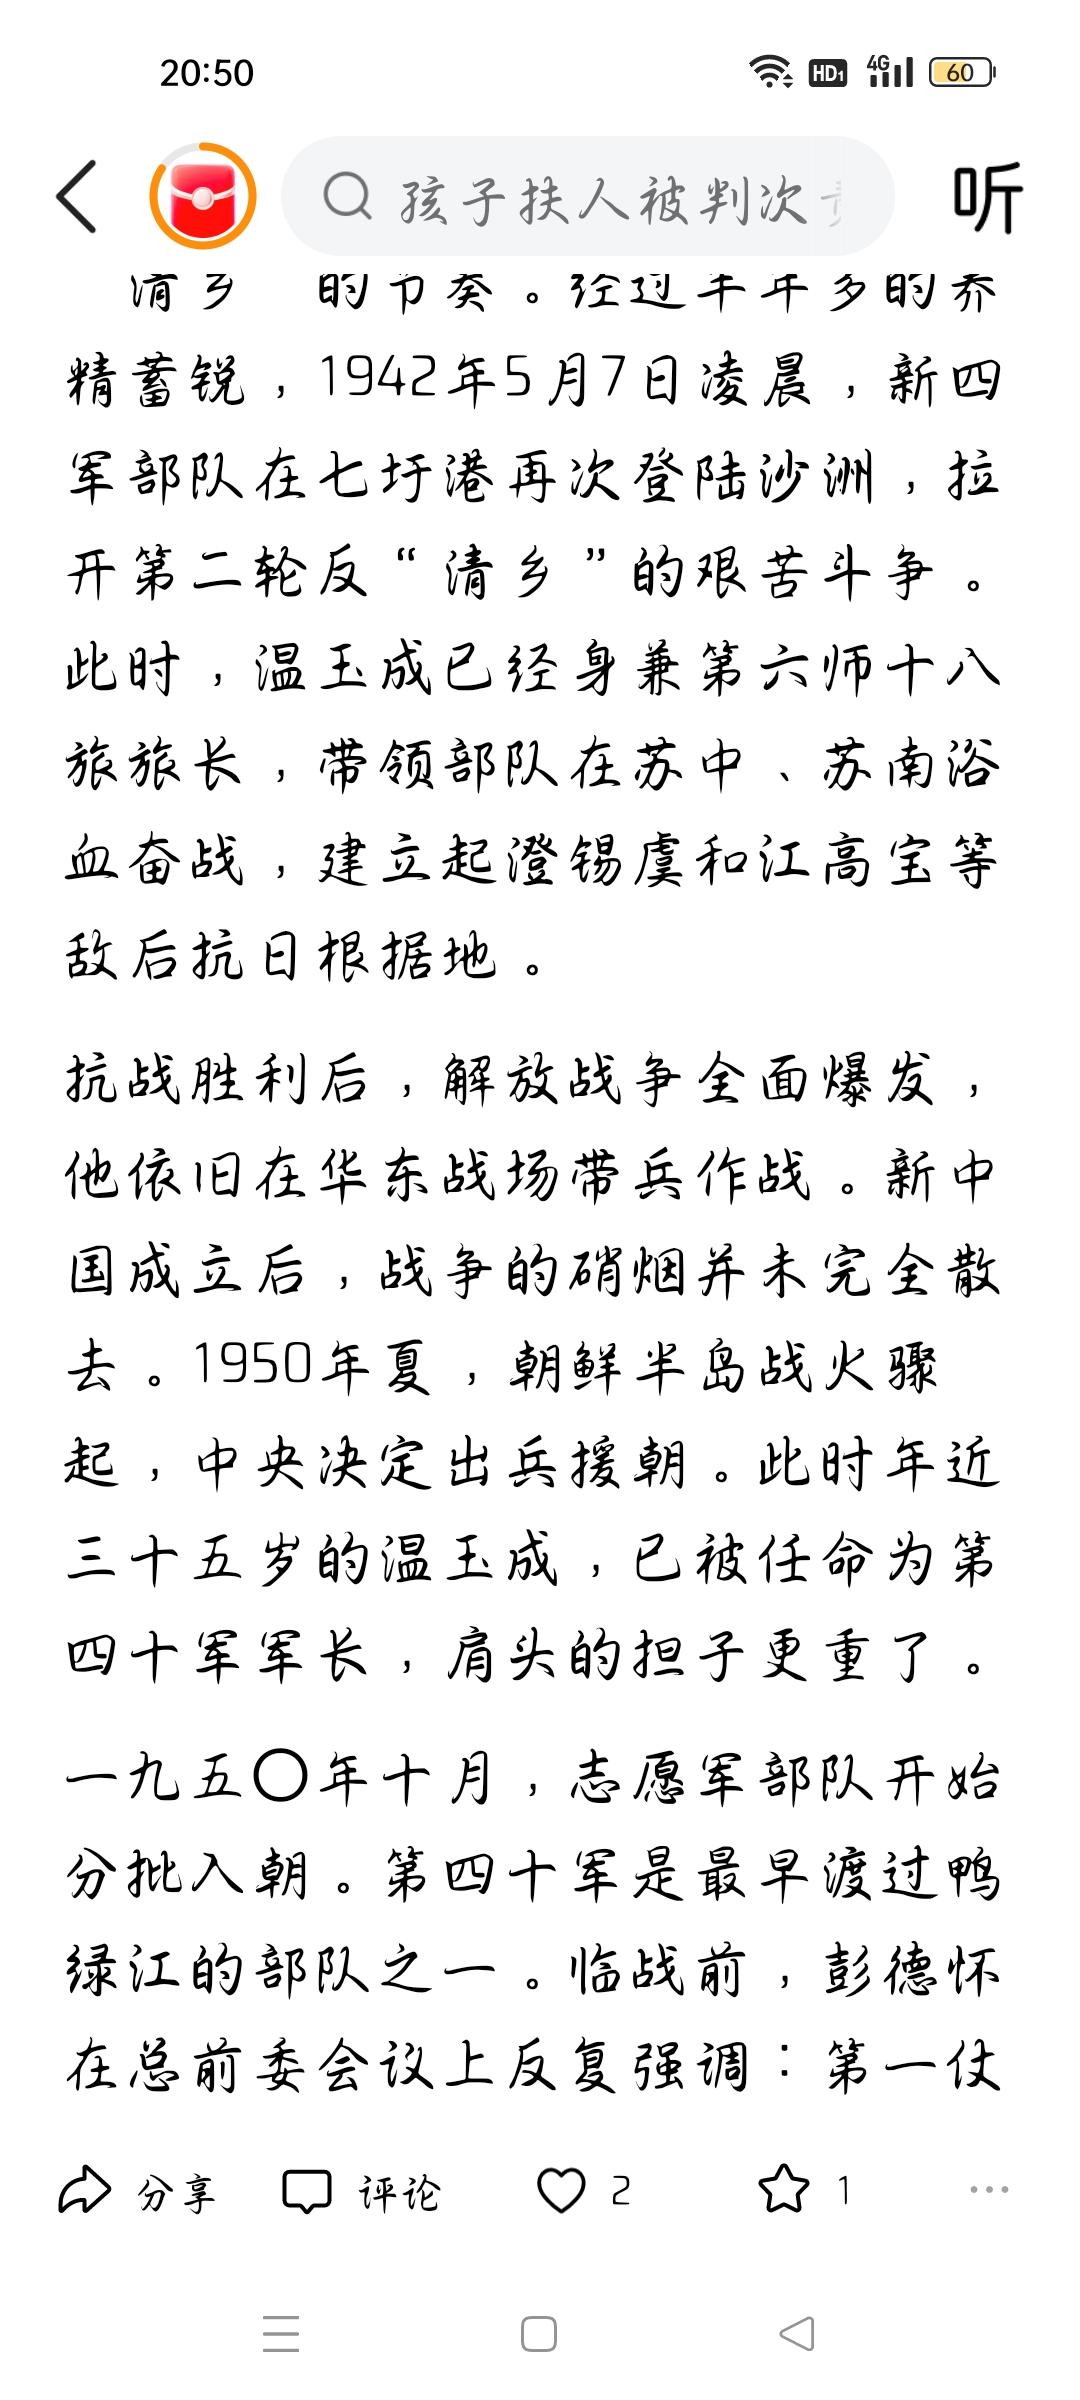 20:50
HD1 4G 60
孩子扶人被判次
听
清乡 的节奏。经过半年多的养
精蓄锐，1942年5月7日凌晨，新四
军部队在七圩港再次登陆沙洲，拉
开第二轮反“清乡”的艰苦斗争。
此时，温玉成已经身兼第六师十八
旅旅长，带领部队在苏中、苏南浴
血奋战，建立起澄锡虞和江高宝等
敌后抗日根据地。
抗战胜利后，解放战争全面爆发，
他依旧在华东战场带兵作战。新中
国成立后，战争的硝烟并未完全散
去。1950年夏，朝鲜半岛战火骤
起，中央决定出兵援朝。此时年近
三十五岁的温玉成，已被任命为第
四十军军长，肩头的担子更重了。
一九五〇年十月，志愿军部队开始
分批入朝。第四十军是最早渡过鸭
绿江的部队之一。临战前，彭德怀
在总前委会议上反复强调：第一仗
分享 评论 2 1